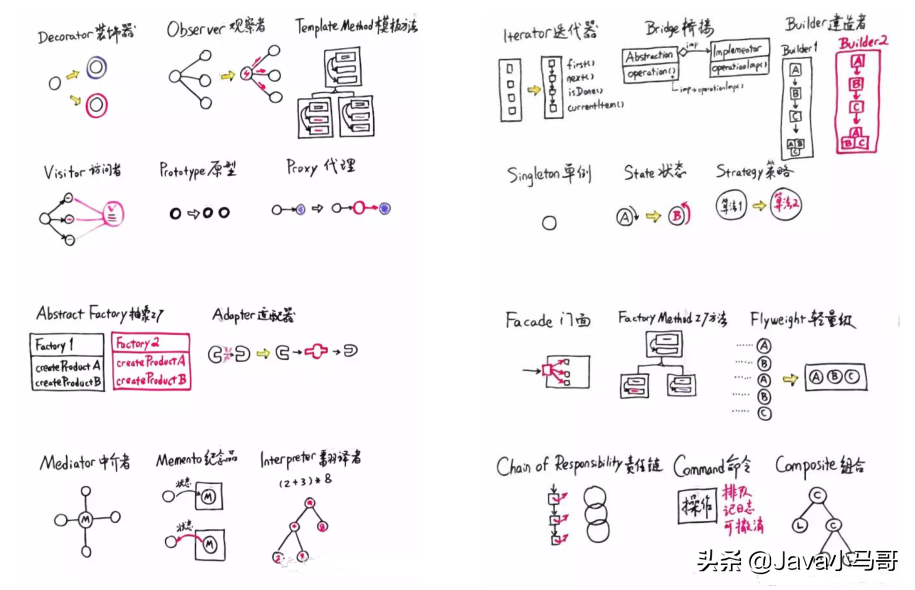 Decorator 装饰器
Observer 观察者
Template Method 模板方法
Visitor 访问者
Prototype 原型
Proxy 代理
Abstract Factory 抽象工厂
Factory 1
createProduct A
createProduct B
Factory 2
createProduct A
createProduct B
Adapter 适配器
Mediator 中介者
M
Memento 纪念品
状态
M
状态
M
Interpreter 翻译者
(2+3)*8
Iterator 迭代器
first()
next()
isDone()
currentItem()
Bridge 桥接
Abstraction
operation()
imp
Implementor
operationImp()
imp→operationImp()
Builder 建造者
Builder 1
A
B
C
A B
C
Builder 2
A
B
C
A
B C
Singleton 单例
State 状态
A
B
Strategy 策略
算法1
算法2
Facade 门面
Factory Method 工厂方法
Flyweight 轻量级
...... A
...... B
...... A
...... B
...... C
A B C
Chain of Responsibility 责任链
Command 命令
操作
排队
记日志
可撤消
Composite 组合
C
L C
L L
头条 @Java小马哥